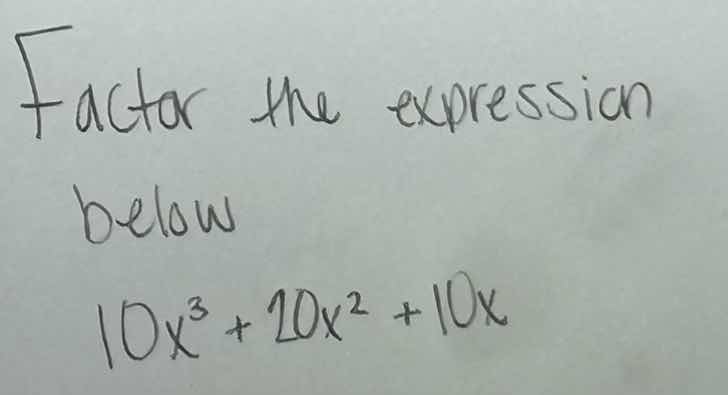 Factor the expression
below
10x³ + 20x² + 10x